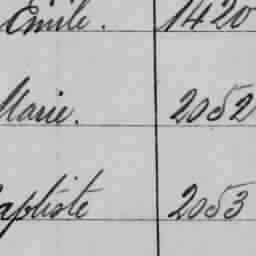 Emile. 1420
Marie. 2052
aptiste 2053